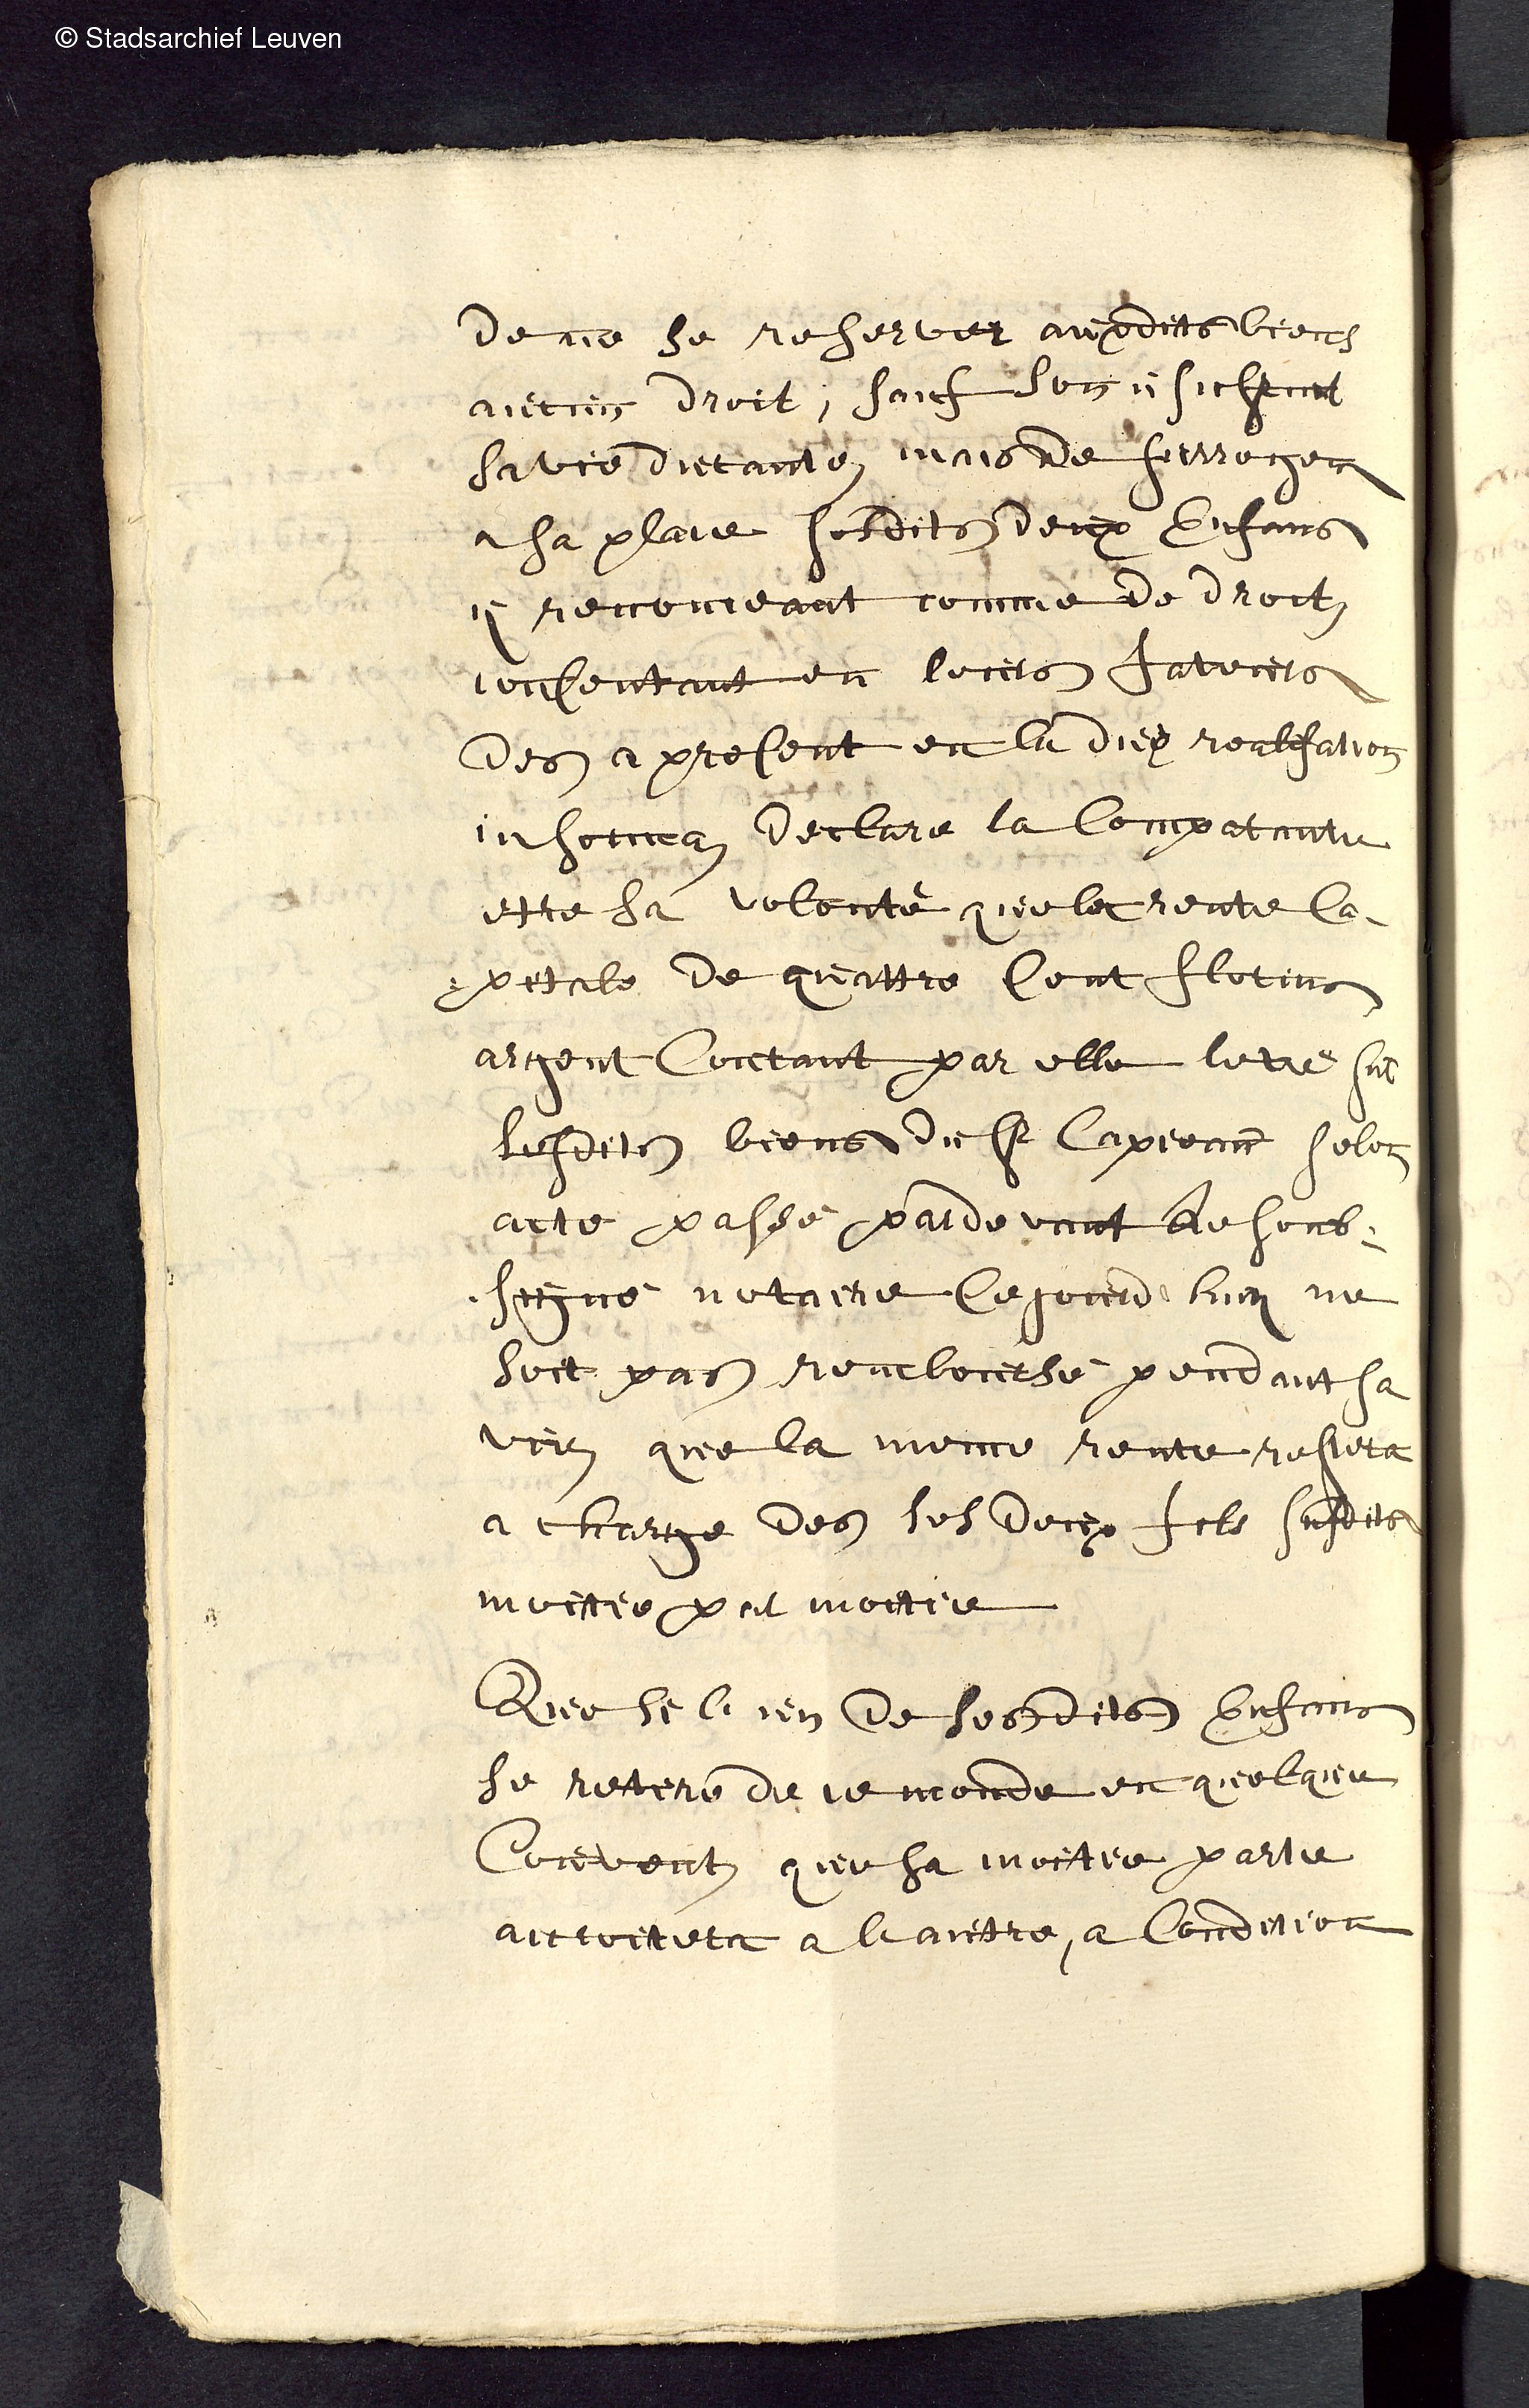 © Stadsarchief Leuven
de ne se reserver auxdits biens
aucun droit, sauf son usufruct
sa vie durante, mais de surroger
a sa place sesdits deux Enfans
y renonceant comme de droit,
consentant en leurs faveurs
des a present en la due realisation
in forma, declare la Comparante
estre sa volonté que la rente Ca-
pitale de quattre Cent florins
argent Contant par elle levé sur
lesdits biens du Sr selon
acte passé pardevant le soub-
signé notaire Cejourd huy ne
soit pas remboursé pendant sa
vie, que la meme rente restera
a charge des ses deux fils susdits
moittie par moittie
Que si l un de sesdits Enfans
se retire de ce monde en quelque
Couvent, que sa moittie partie
accroitera a l autre, a Condition